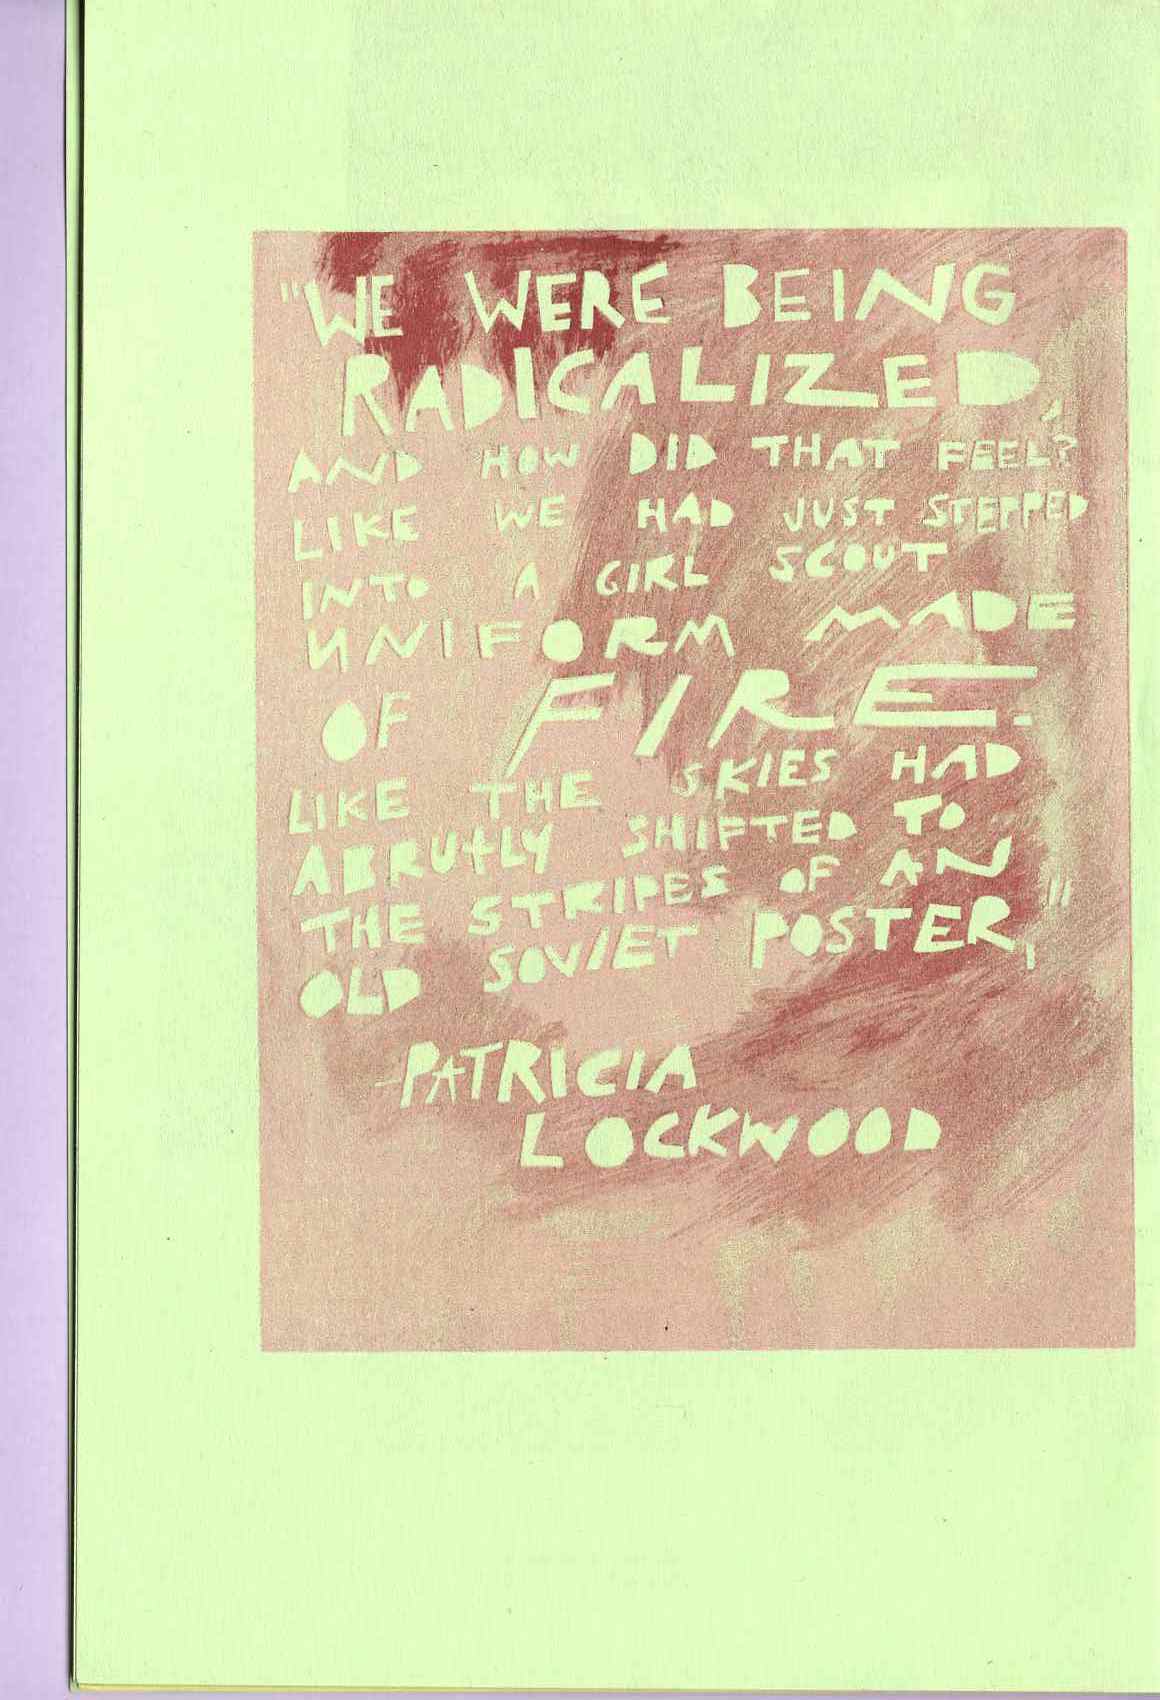 "WE WERE BEING
RADICALIZED,
AND HOW DID THAT FEEL?
LIKE WE HAD JUST STEPPED
INTO A GIRL SCOUT
UNIFORM MADE
OF FIRE.
LIKE THE SKIES HAD
ABRUTLY SHIFTED TO
THE STRIPES OF AN
OLD SOVIET POSTER,"
-PATRICIA
LOCKWOOD